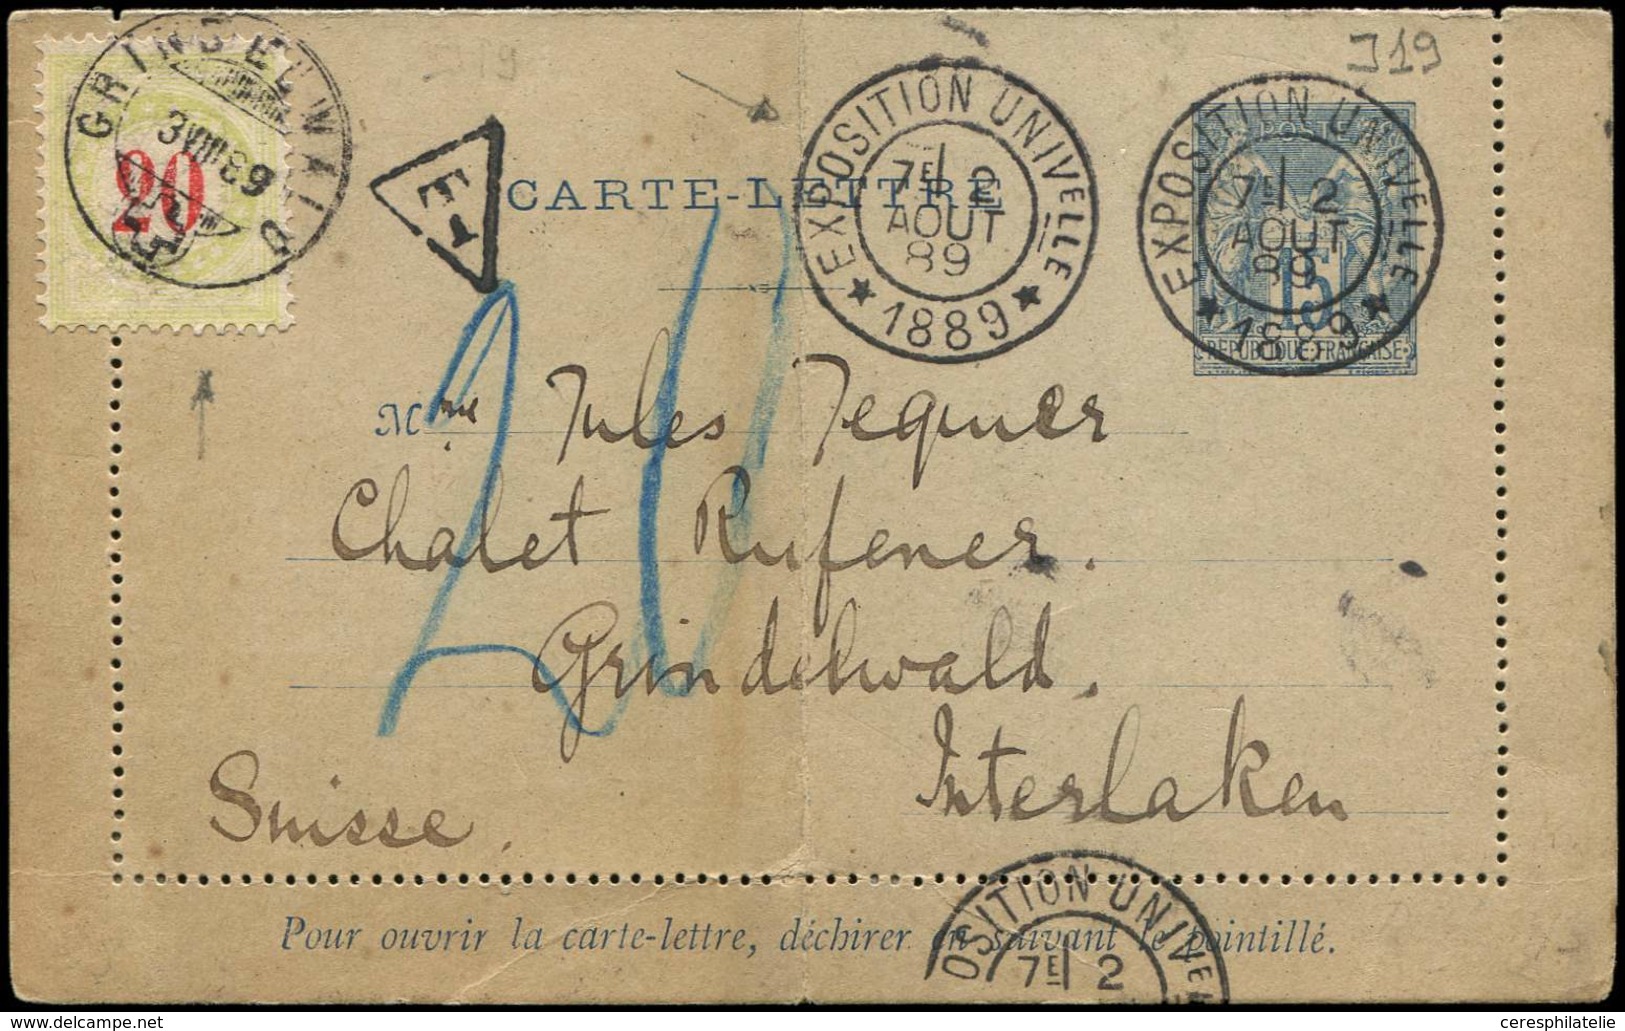 GRINDELWALD
3 VIII 89
20
T
J19
CARTE-LETTRE
EXPOSITION UNIVELLE
7E 2
AOUT
89
★ 1889 ★
EXPOSITION UNIVELLE
7E 2
AOUT
89
★ 1889 ★
15
REPUBLIQUE FRANÇAISE
20
Mme Jules Tegner
Chalet Rufener.
Grindelwald.
Interlaken
Suisse.
Pour ouvrir la carte-lettre, déchirer en suivant le pointillé.
OSITION UNIVE
7E 2
ceresphilatelie
delcampe.net